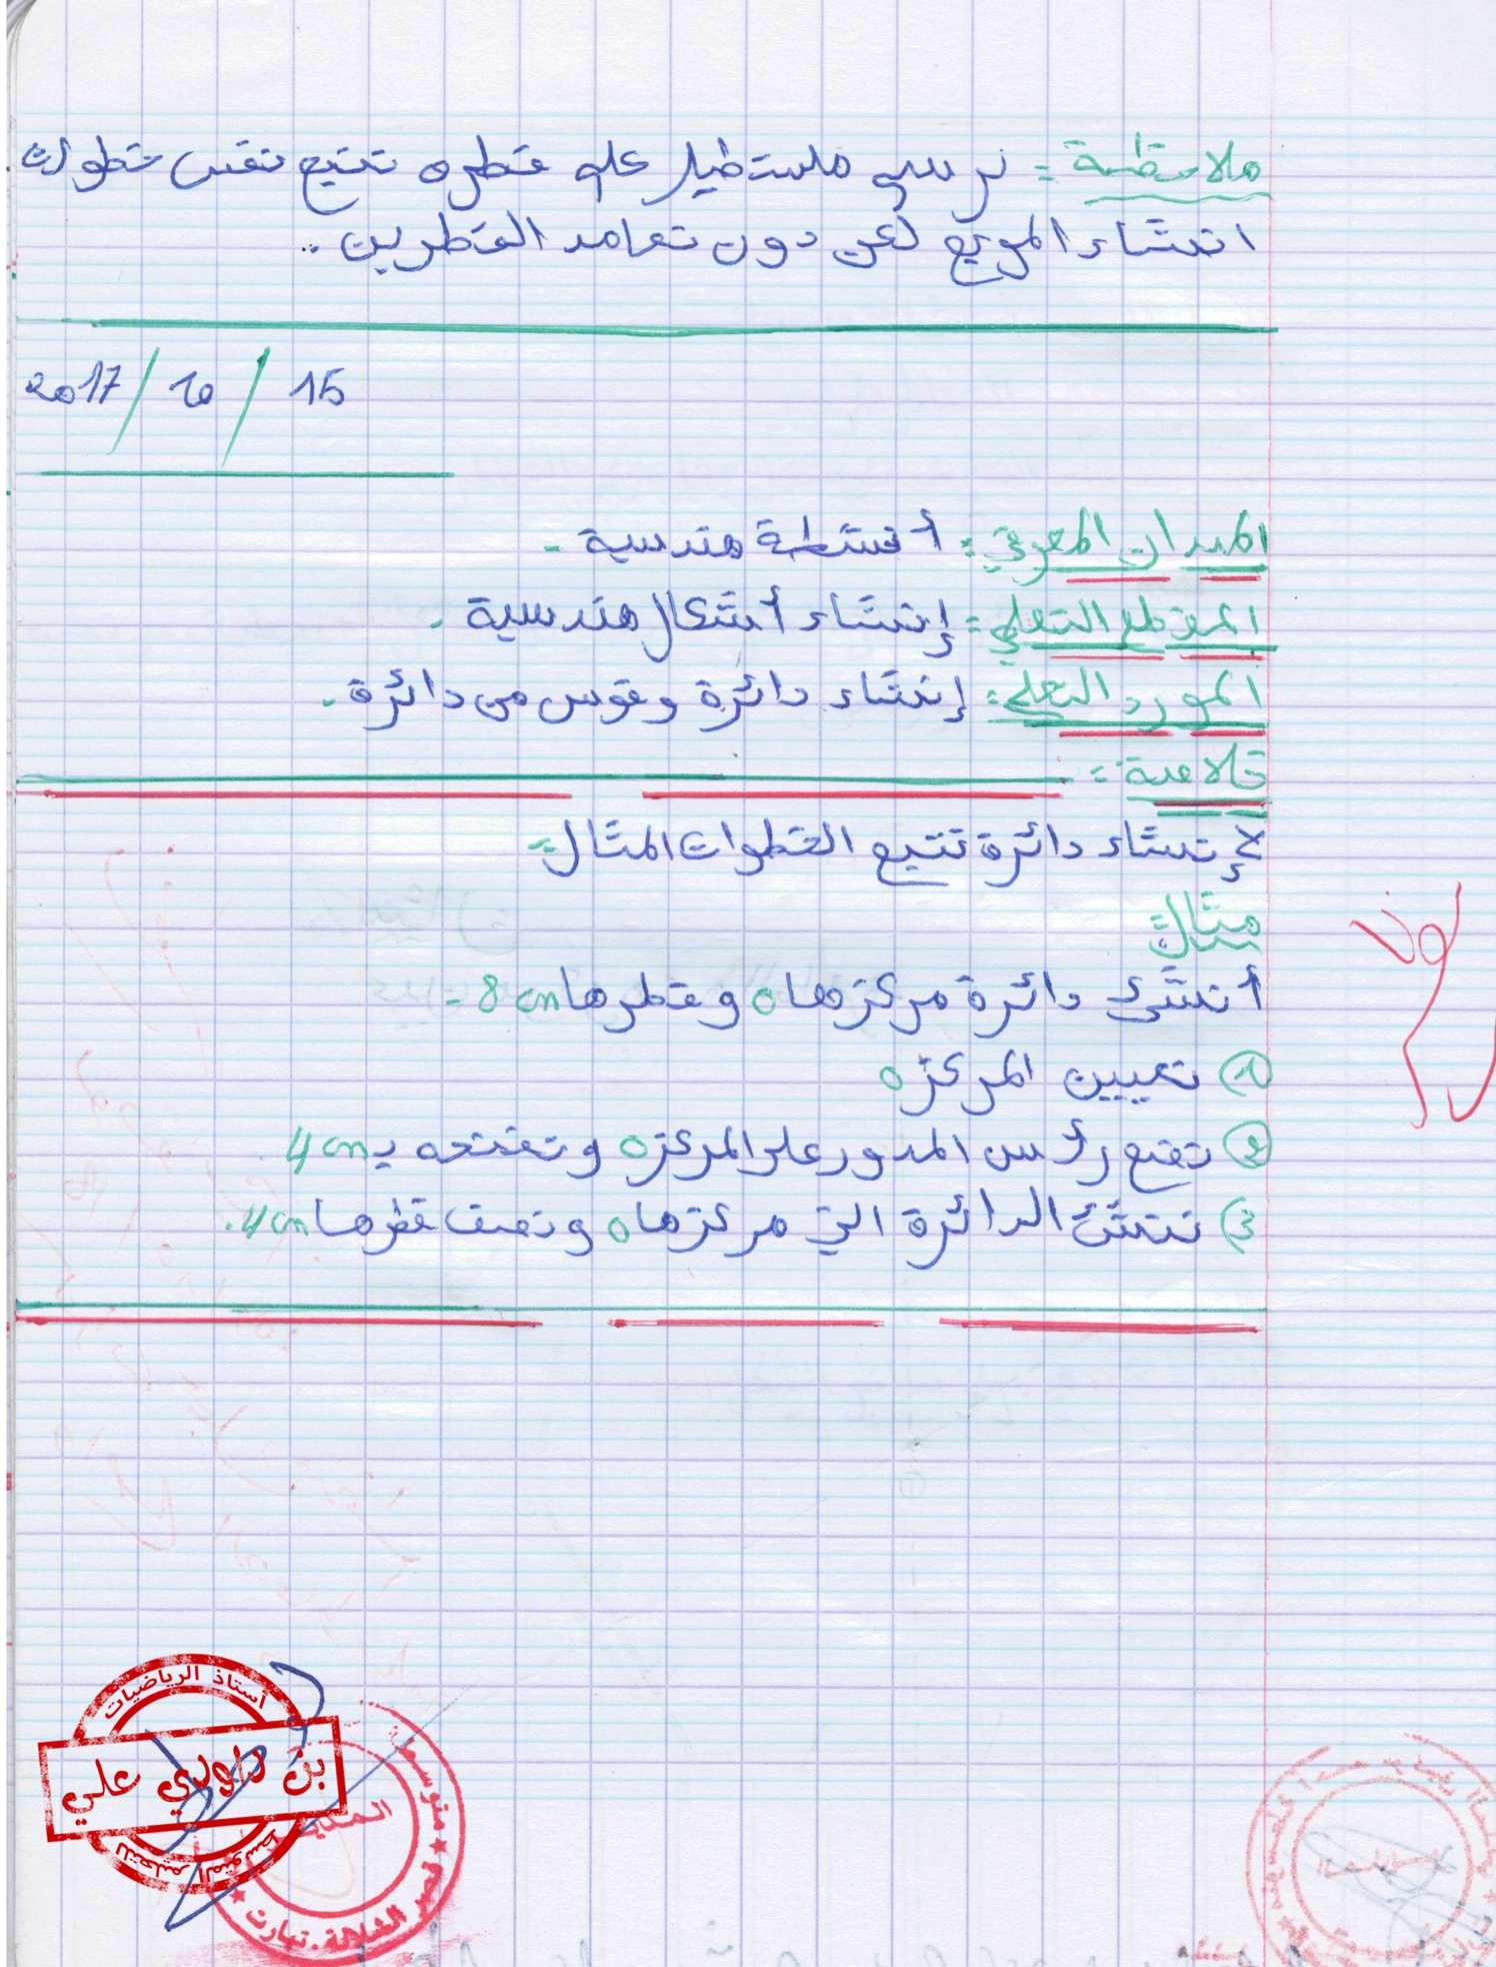 ملاحظة: نرسم مستطيل علم قطره نتبع نفس خطوات
انشاء المربع لكن دون تعامد القطرين ..
2017 / 10 / 15
الميدان المعرفي: أنشطة هندسية -
المقطع التعلمي: إنشاء أشكال هندسية .
المورد التعلمي: إنشاء دائرة وقوس من دائرة .
خلاصة:
لإنشاء دائرة نتبع الخطوات المثال:
مثال:
أنشئ دائرة مركزها o وقطرها 8 cm -
① تعيين المركز o
② نضع رأس المدور على المركز o ونفتحه بـ 4 cm
③ ننشئ الدائرة التي مركزها o ونصف قطرها 4 cm.
أستاذ الرياضيات
بن الولدي علي
للتعليم المتوسط
المدير
متوسطة
الشلالة . تيارت